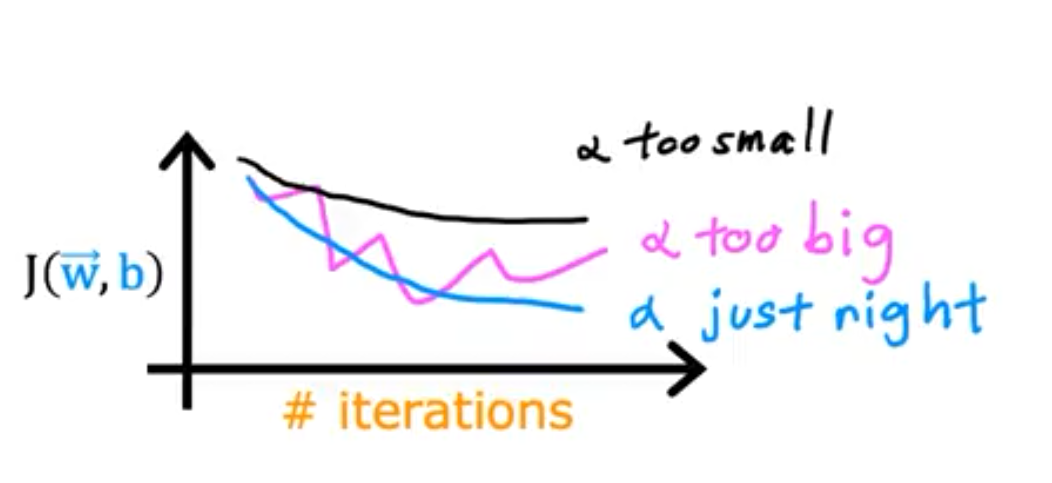 α too small
α too big
J(w⃗, b)
α just right
# iterations